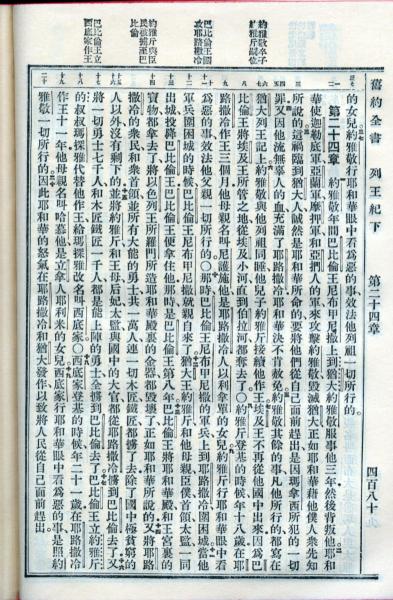 舊約全書 列王紀下 第二十四章 四百八十
約雅敬卒子
約雅斤嗣位
巴比倫王圍
攻耶路撒冷
約雅斤與臣
民被擄至巴
比倫
巴比倫王立
西底家作王
的女兒約雅敬行耶和華眼中看為惡的事效法他列祖一切所行的
第二十四章 約雅敬年間巴比倫王尼布甲尼撒上到猶大約雅敬服事他三年然後背叛他耶和
華使迦勒底軍亞蘭軍摩押軍和亞捫人的軍來攻擊約雅敬毀滅猶大正如耶和華藉他僕人衆先知
所說的這禍臨到猶大人誠然是耶和華所命的要將他們從自己面前趕出是因瑪拿西所犯的一切
罪又因他流無辜人的血充滿了耶路撒冷耶和華決不肯赦免約雅敬其餘的事凡他所行的都寫在
猶大列王記上約雅敬與他列祖同睡他兒子約雅斤接續他作王埃及王不再從他國中出來因為巴
比倫王將埃及王所管之地從埃及小河直到伯拉河都奪去了〇約雅斤登基的時候年十八歲在耶
路撒冷作王三個月他母親名叫尼護施他是耶路撒冷人以利拿單的女兒約雅斤行耶和華眼中看
為惡的事效法他父親一切所行的〇那時巴比倫王尼布甲尼撒的軍兵上到耶路撒冷圍困城當他
軍兵圍困城的時候巴比倫王尼布甲尼撒就親自來了猶大王約雅斤和他母親臣僕首領太監一同
出城投降巴比倫王巴比倫王便拿住他那時是巴比倫王第八年巴比倫王將耶和華殿和王宮裏的
寶物都拿去了將以色列王所羅門所造耶和華殿裏的金器都毀壞了正如耶和華所說的又將耶路
撒冷的衆民和衆首領並所有大能的勇士共一萬人連一切木匠鐵匠都擄了去除了國中極貧窮的
人以外沒有剩下的並將約雅斤和王母后妃太監與國中的大官都從耶路撒冷擄到巴比倫去了又
將一切勇士七千人和木匠鐵匠一千人都是能上陣的勇士全擄到巴比倫去了巴比倫王立約雅斤
的叔瑪探雅代替他作王給瑪探雅改名叫西底家〇西底家登基的時候年二十一歲在耶路撒冷
作王十一年他母親名叫哈慕他是立拿人耶利米的女兒西底家行耶和華眼中看為惡的事是照約
雅敬一切所行的因此耶和華的怒氣在耶路撒冷和猶大發作以致將人民從自己面前趕出